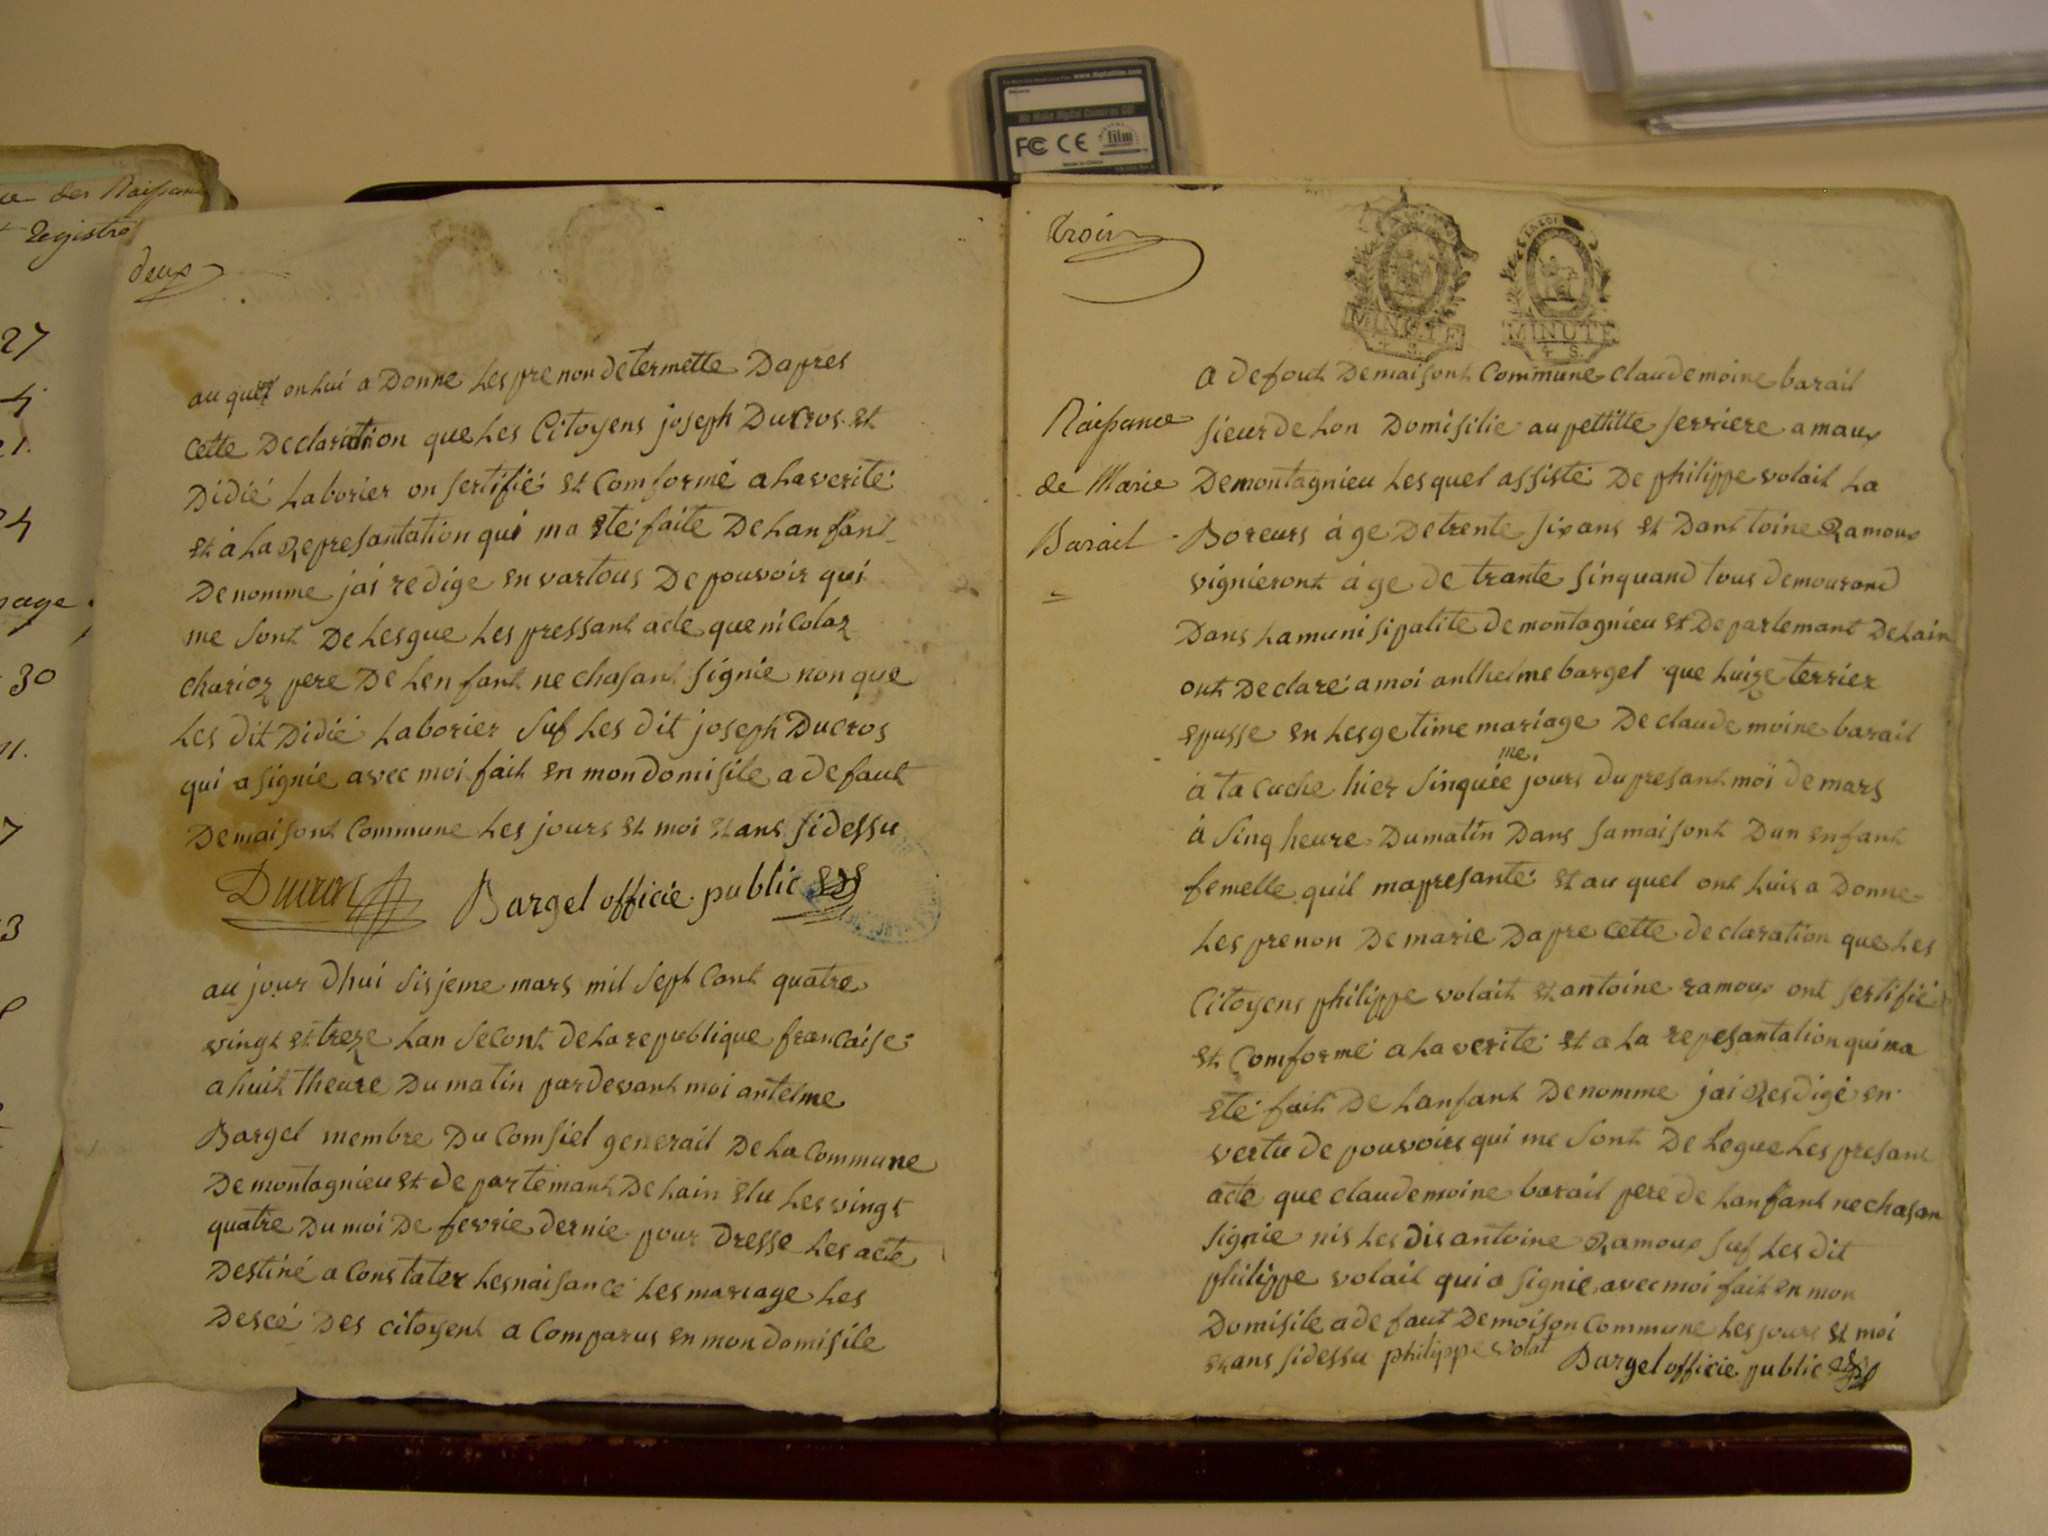 www.digitalfilm.com
We Make Digital Cameras GO
FC CE film
des Naissan
registre
27
4
21.
24
page
30
7
3
deux
au quel on lui a Donne Les pre non de termette Dapres
Cette Declaration que Les Citoyens joseph Ducros et
Didié Laborier on sertifié et Comformé a La verité
et á La Represantation qui ma eté faite De Lanfant
De nomme jai redige en vartous De pouvoir qui
me sont De Lesgue Les pressant acte que nicolaz
charioz pere De Lenfant ne chasant signie non que
Les dit Didié Laborier suf Les dit joseph Ducros
qui a signie avec moi fait en mon domisile a defaut
De maisont Commune Les jours et moi et ans sidessu
Ducros Bargel officie public
au jour dhui sisjeme mars mil sept Cant quatre
vingt et treze Lan secont de La republique francaise
a huit theure Du matin pardevant moi antelme
Bargel membre Du Comsiel generail De La Commune
De montagnieu et de partemant De Lain elu Les vingt
quatre Du moi De fevrie dernie pour Dresse Les acte
Destiné a Constater Les naisance Les mariage Les
Descé Des citoyent a Comparus en mon domisile
trois
MINUTE
MINUTE
a defout De maisont Commune claude moine barail
Naissance
sieur de Lon Domisilie au pettitte serriere a maux
de Marie
De montagnieu Les quel assisté De philippe volait La
Barail
Boreurs áge De trente six ans et Dant toine Ramoux
vignieront áge de trante sinquand tous demourand
Dans La munisipalite de montagnieu et De partemant De Lain
ont De claré a moi anthelme bargel que Luize terrier
epusse en Les getime mariage De claude moine barail
me
á ta cuche hier sinquée jours du presant moi de mars
á sinq heure Du matin Dans sa maisont Dun enfant
femelle quil mapresanté et au quel ont Luis a Donne
Les pre non De marie Dapre cette declaration que Les
Citoyens philippe volait et antoine ramoux ont sertifié
et Comformé a La verité et a La repesantation qui ma
eté fait De Lanfant De nomme jai Resdigé en
vertu de pouvoirs qui me sont De Legue Les presant
acte que claude moine barail pere de Lanfant ne chasan
signie nis Les dis antoine Ramoux suf Les dit
philippe volail qui a signie avec moi fait en mon
Domisile a de faut De moison Commune Les jours et moi
et ans sidessu philippe volat Bargel officie public